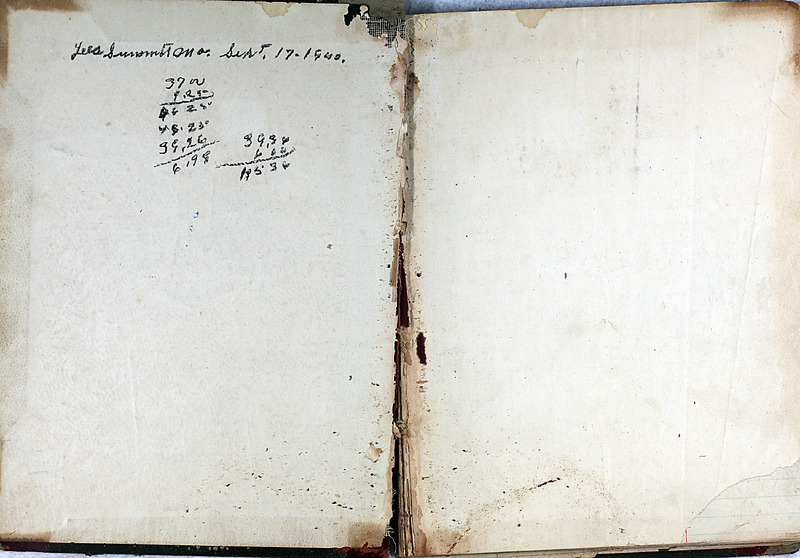 Lees Summitt Mo. Sept. 17-1900.
3700
9.25
46 25
46.25
39,26
6,98
39,36
6 00
45 36